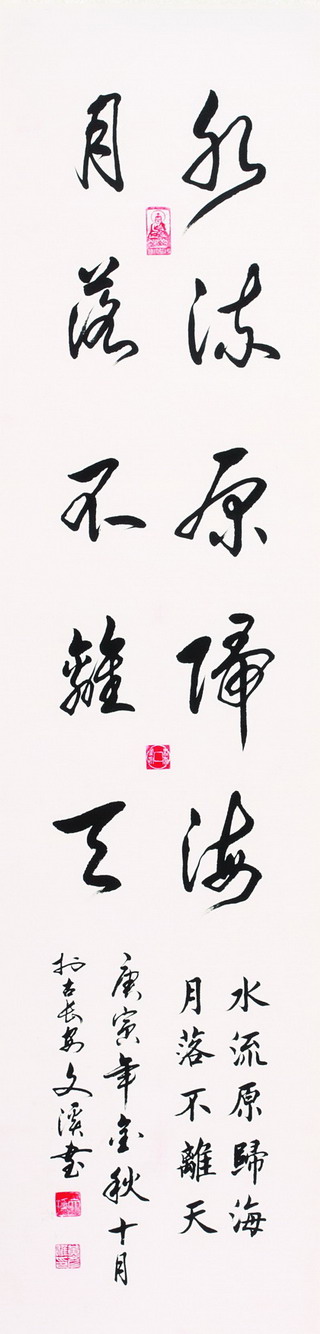 水流原歸海
月落不離天
水流原歸海
月落不離天
庚寅年金秋十月
於古長安文溪書